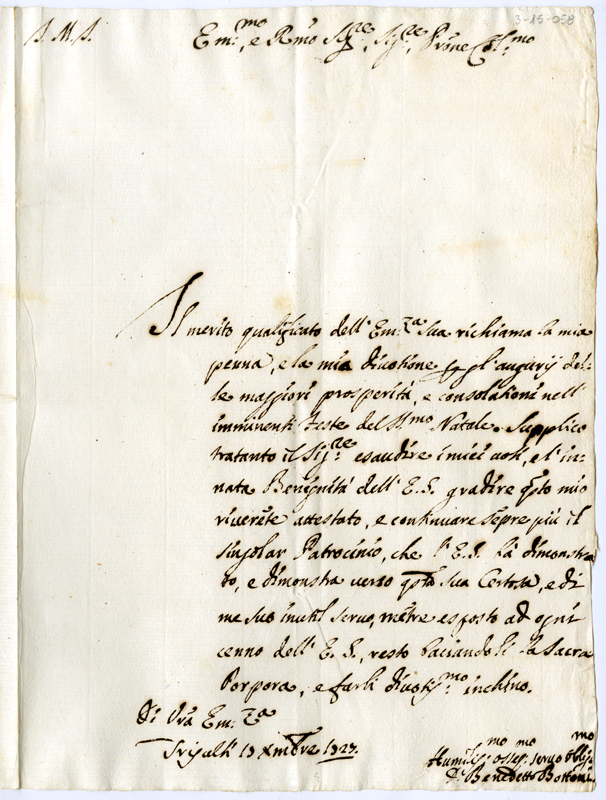 3-15-058
J. M. J.
Em.mo, e Rmo Sig.re, Sig.re, Prõne Col.mo
Il merito qualificato dell' Em.za Sua richiama la mia
penna, e la mia diuotione p gl' augurij del-
le maggiori prosperità, e consolationi nell'
imminenti feste del SS.mo Natale. Supplico
tratanto il Sig.re esaudire i miei uoti, e l' in-
nata Benignità dell' E. S. gradire q̃sto mio
riuerẽte attestato, e continuare sẽpre più il
singolar Patrocinio, che l' E. S. hà dimostra
to, e dimostra uerso q̃sta sua Certosa, e di
me suo inutil seruo, mẽtre esposto ad ogni
cenno dell' E. S., resto baciandoli la Sacra
Porpora, e farli diuotiss.mo inchino.
Di Vrã Em.za
13 Xmbre 1727.
Humiliss.mo osseq.mo seruo obblig.mo
D. Benedetto Bottoni